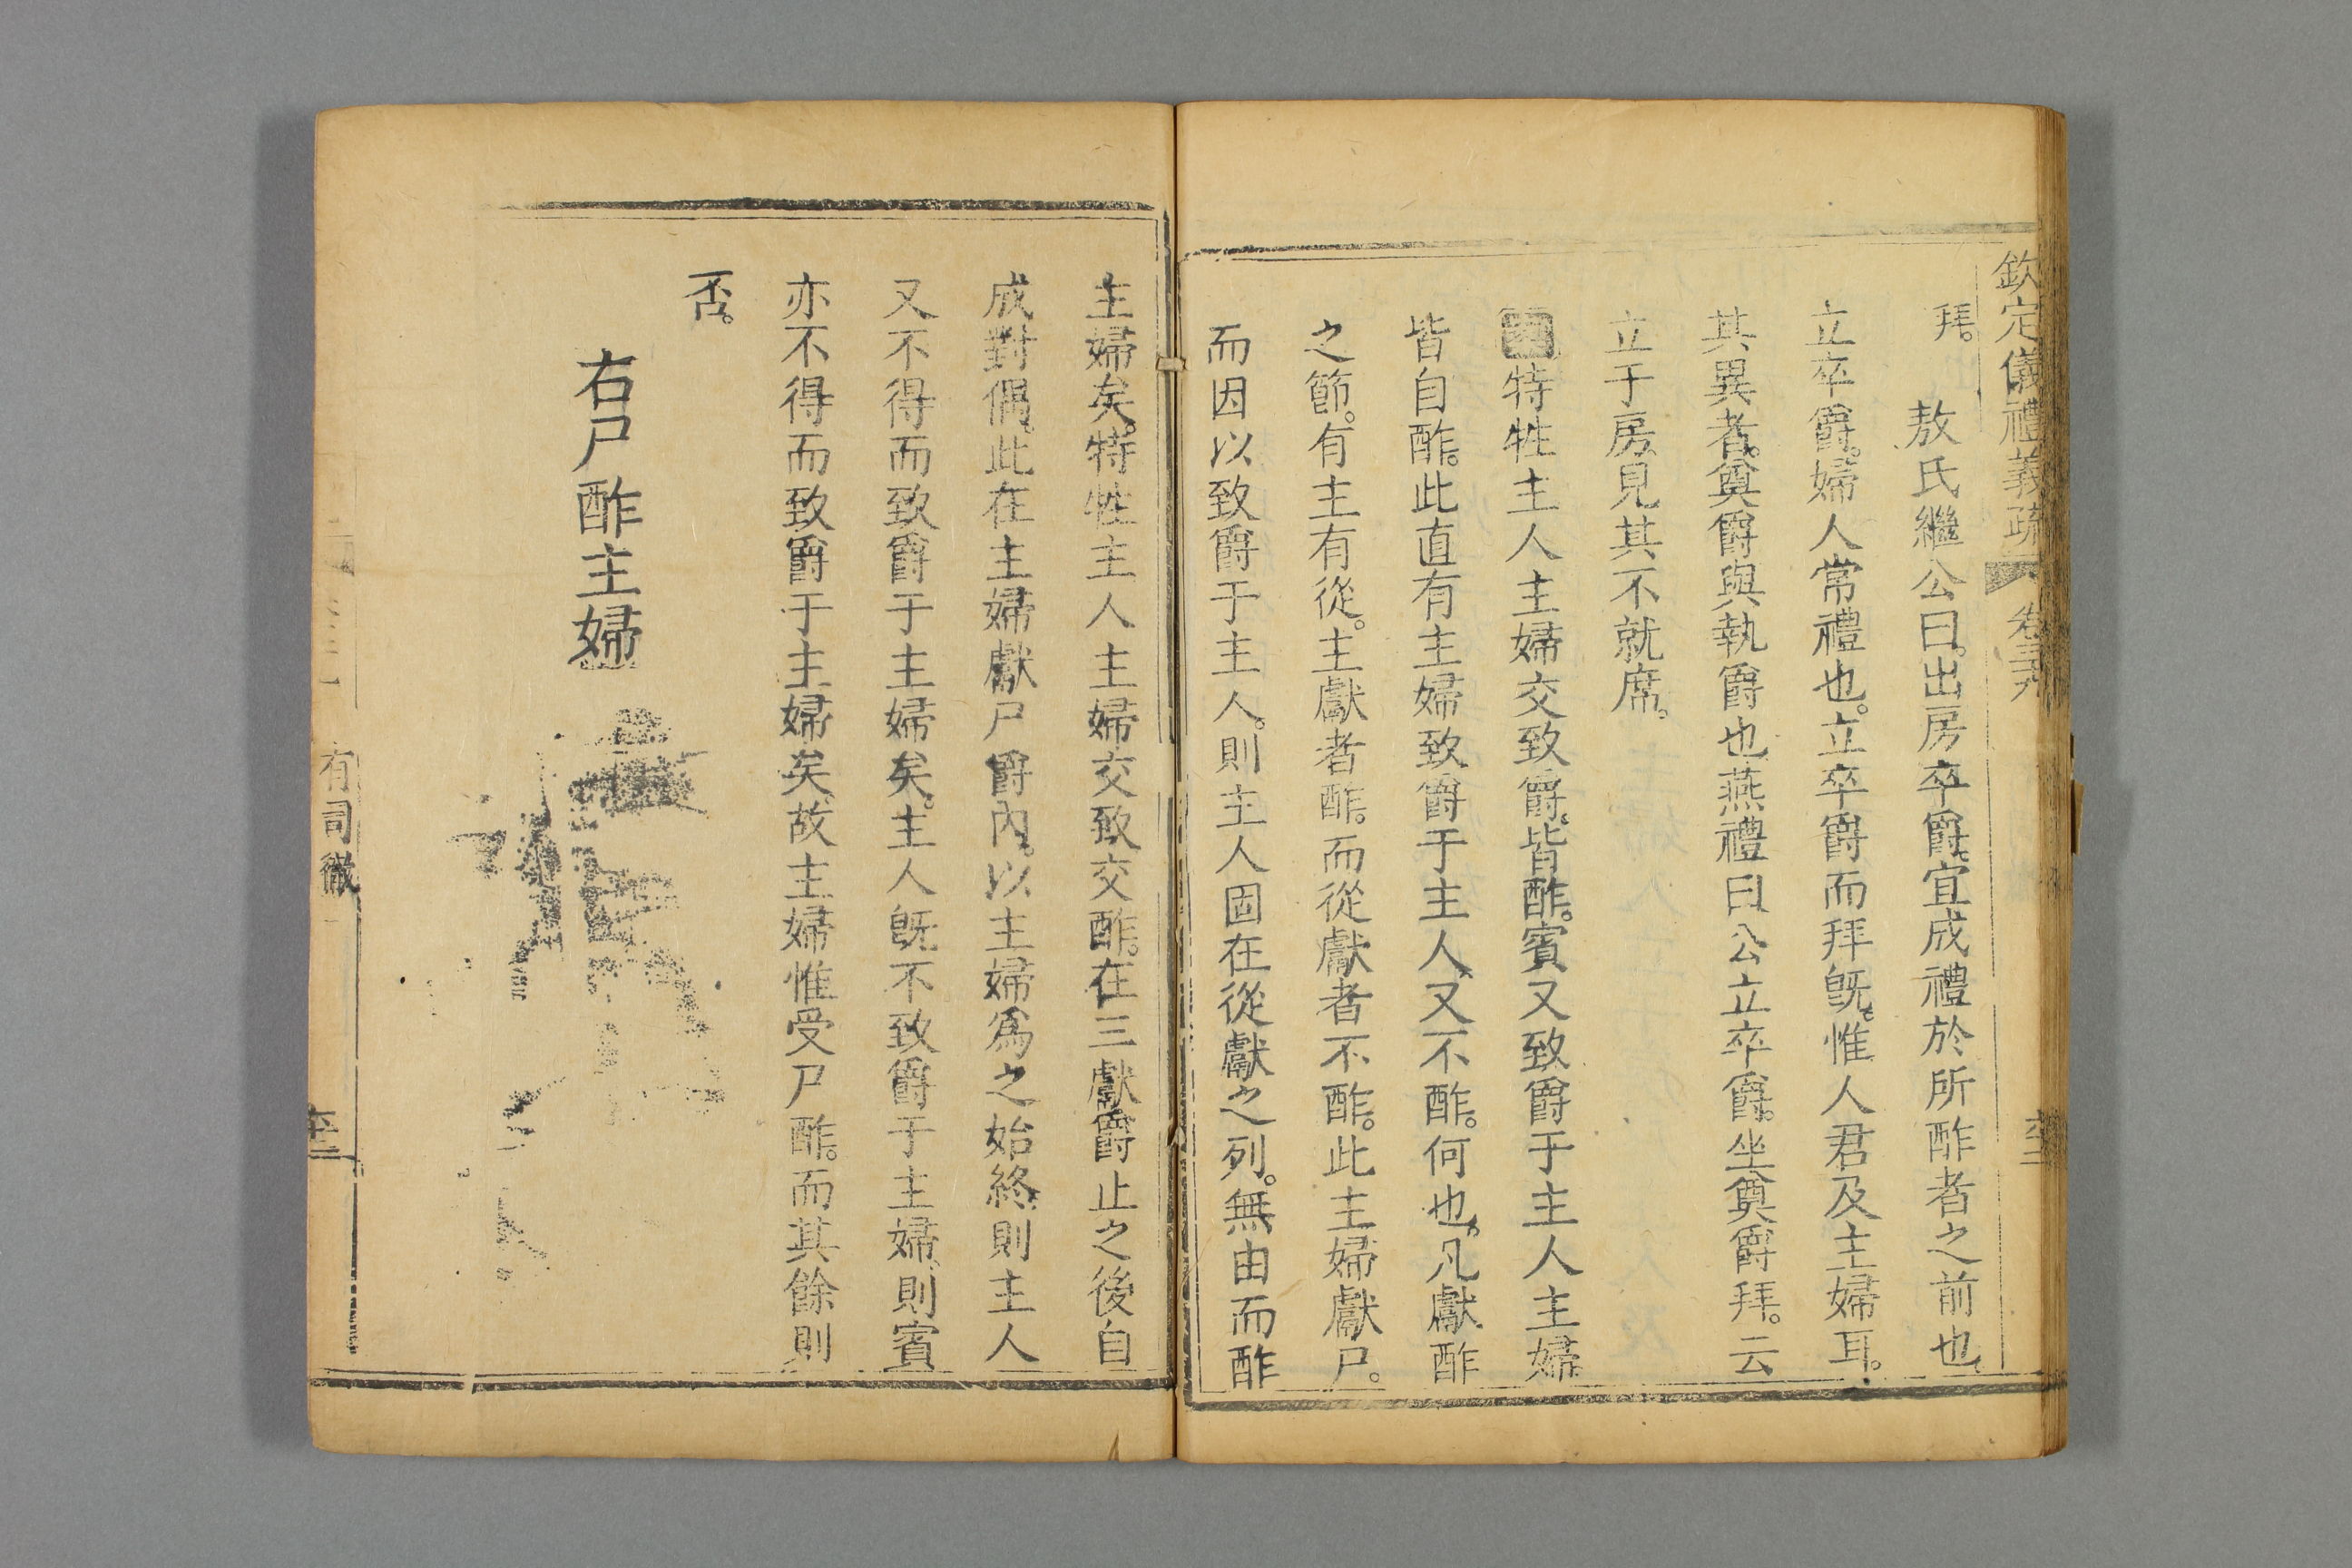 欽定儀禮義疏 卷三十八
拜。 敖氏繼公曰。出房卒爵。宜成禮於所酢者之前也。
立卒爵。婦人常禮也。立卒爵而拜旣。惟人君及主婦耳。
其異者。奠爵與執爵也。燕禮曰公立卒爵。坐奠爵拜。云
立于房。見其不就席。
特牲主人主婦交致爵。皆酢。賓又致爵于主人主婦
皆自酢。此直有主婦致爵于主人。又不酢。何也。凡獻酢
之節。有主有從。主獻者酢。而從獻者不酢。此主婦獻尸。
而因以致爵于主人。則主人固在從獻之列。無由而酢
主婦矣。特牲主人主婦交致交酢。在三獻爵止之後自
成對偶。此在主婦獻尸爵內。以主婦爲之始終。則主人
又不得而致爵于主婦矣。主人旣不致爵于主婦。則賓
亦不得而致爵于主婦矣。故主婦惟受尸酢。而其餘則
否。
右尸酢主婦
有司徹